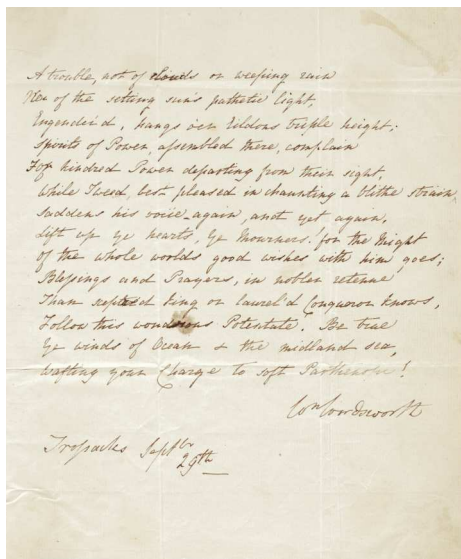 A trouble, not of clouds or weeping rain
Nor of the setting sun's pathetic light,
Engender'd, hangs o'er Eildons triple height;
Spirits of Power, assembled there, complain
For kindred Power departing from their sight,
While Tweed, best pleased in chaunting a blithe strain,
Saddens his voice again, and yet again.
Lift up ye hearts, Ye Mourners! for the Might
Of the whole worlds good wishes with him goes;
Blessings and Prayers, in nobler retinue
Than sceptred King or laurel'd Conqueror knows,
Follow this wonderous Potestate. Be true
Ye winds of Ocean & the midland sea,
Wafting your Charge to soft Parthenope!
Wm Wordsworth
Trosachs Septbr
29th